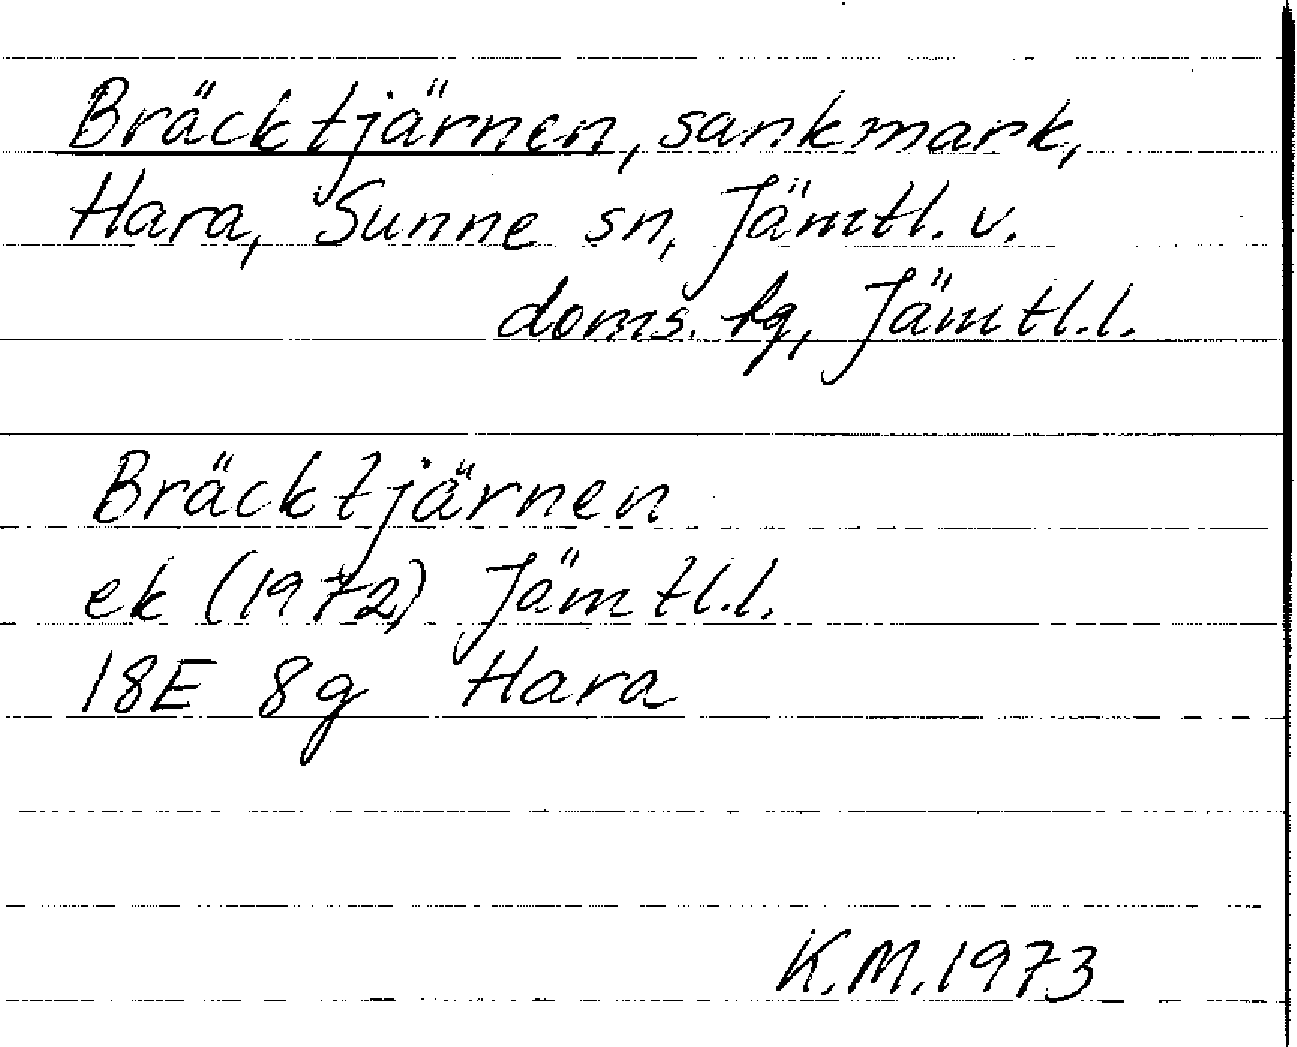 Bräcktjärnen, sankmark,
Hara, Sunne sn, Jämtl. v.
doms. tg, Jämtl.l.
Bräcktjärnen
ek (1972) Jämtl.l.
18E 8g Hara
K.M.1973